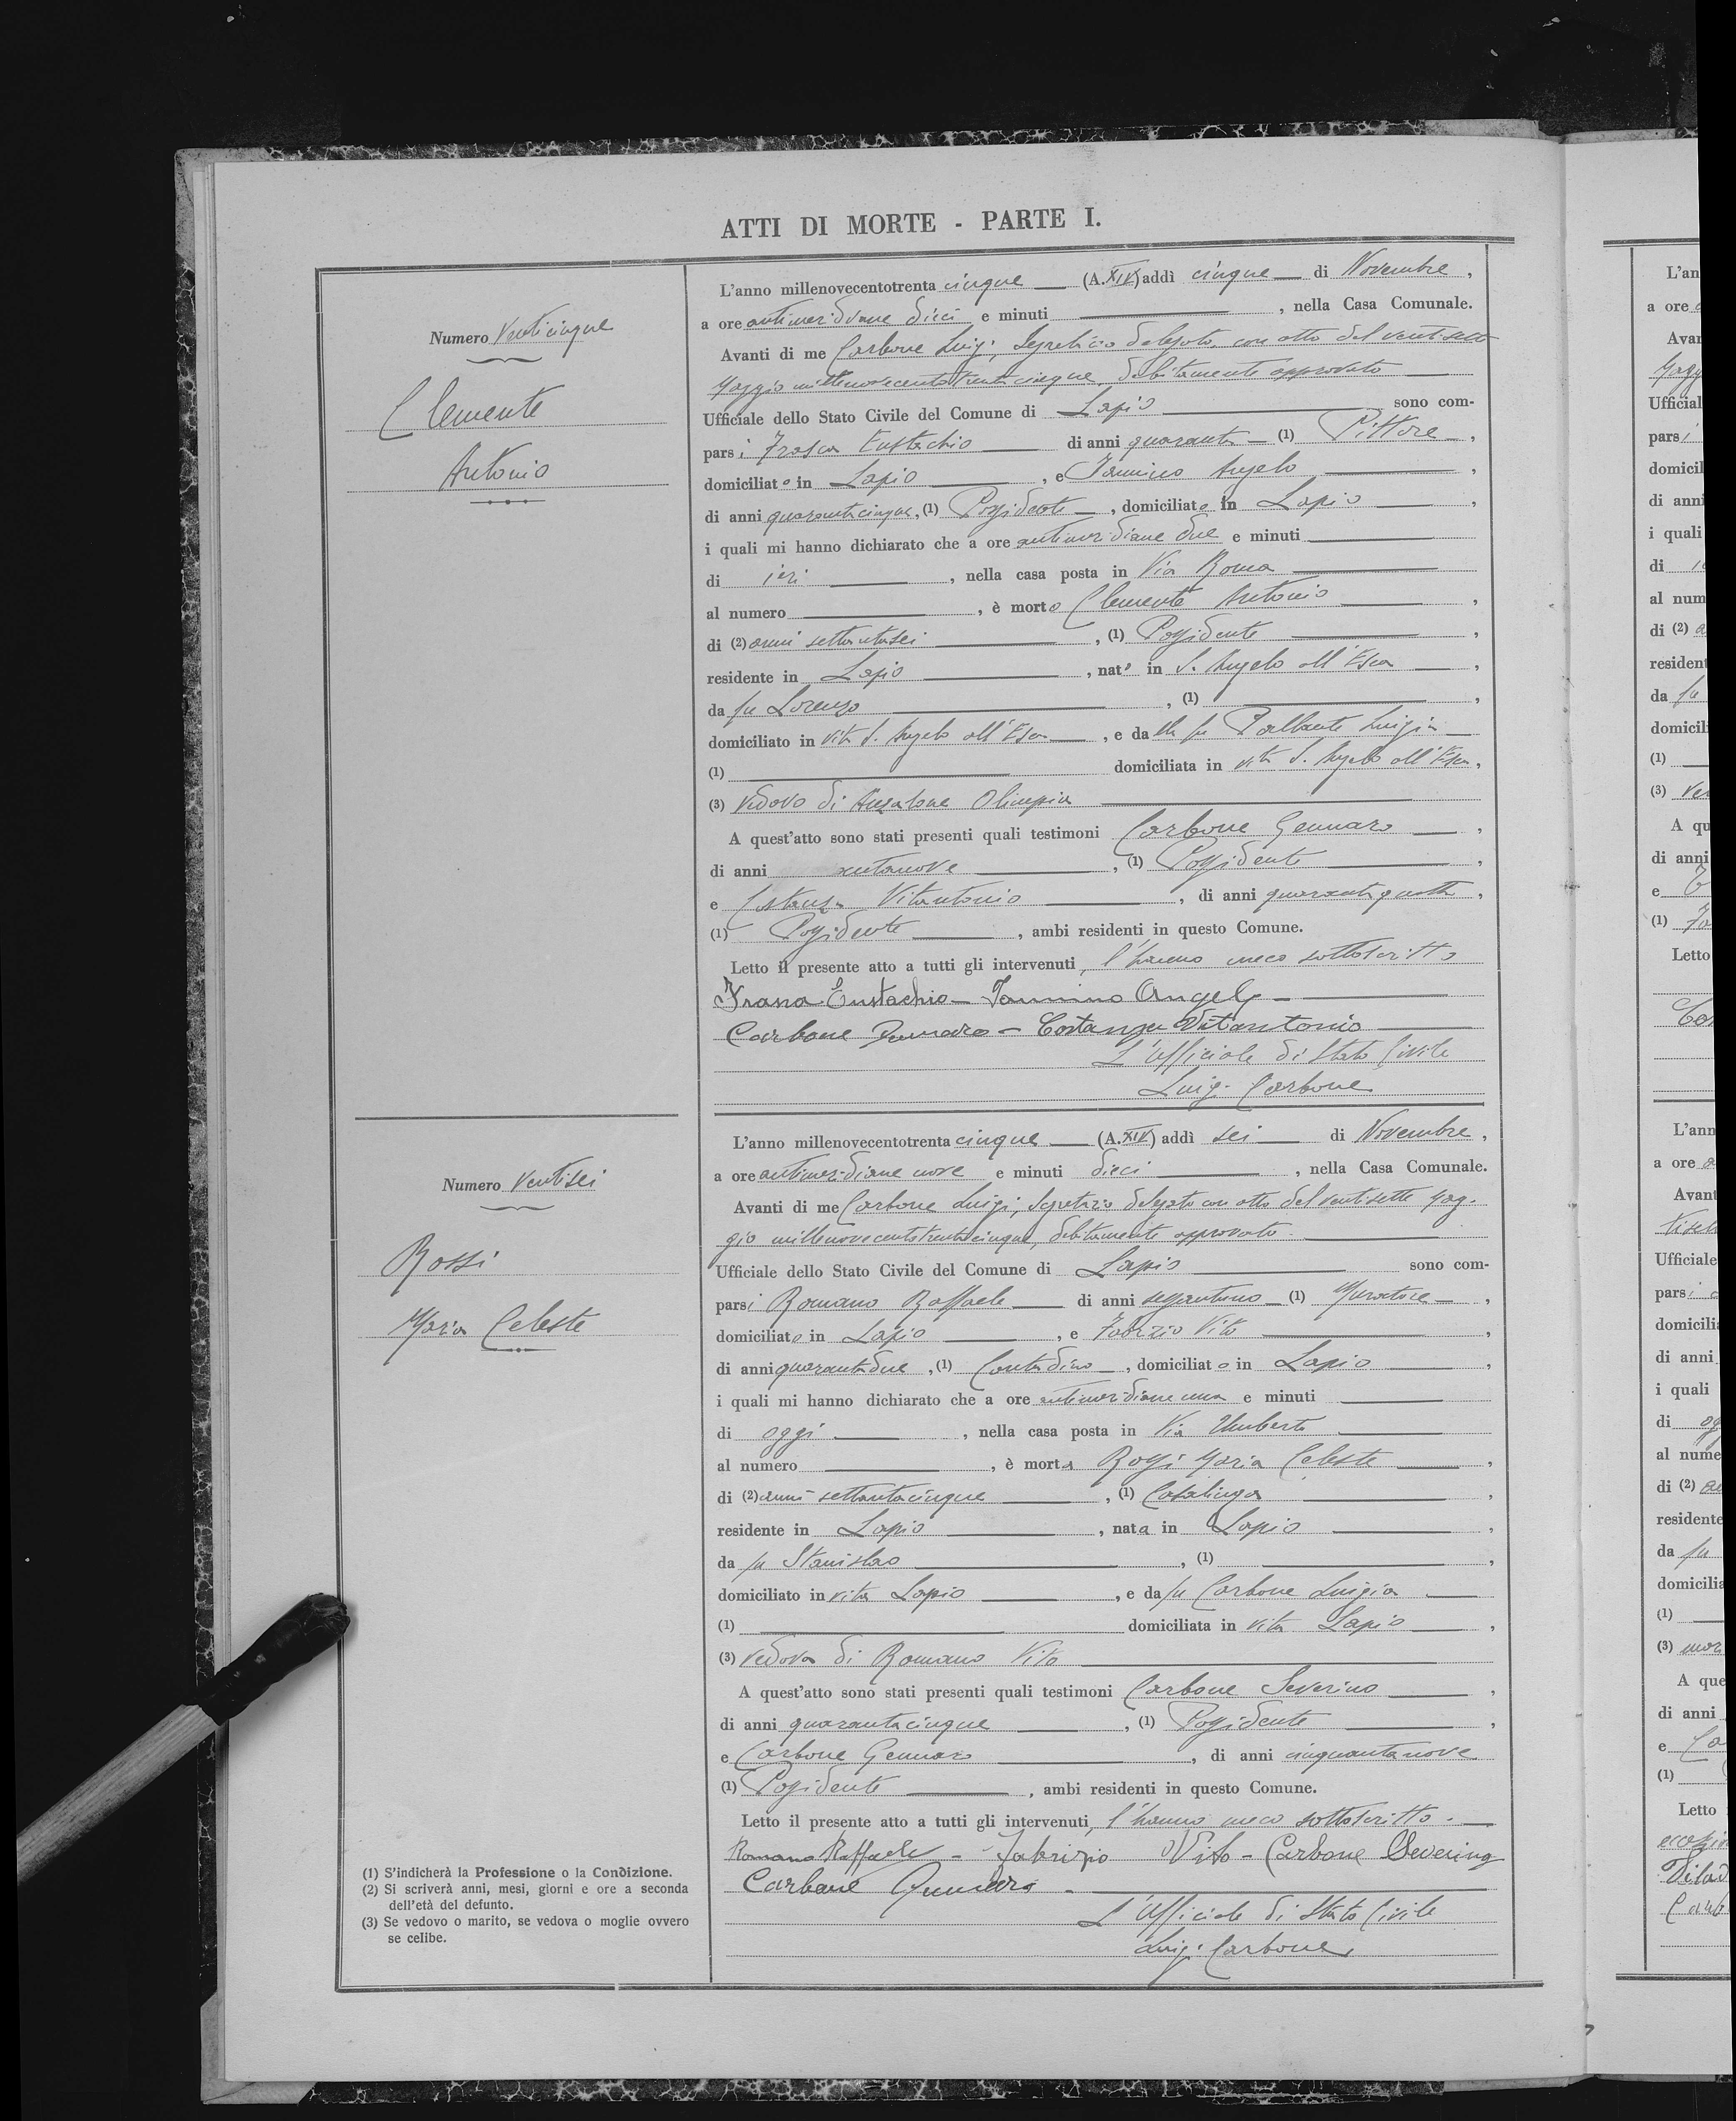 ATTI DI MORTE - PARTE I.
Numero Venticinque
Clemente
Antonio
L'anno millenovecentotrenta cinque (A. XIV) addì cinque di Novembre,
a ore antimeridiane dieci e minuti , nella Casa Comunale.
Avanti di me Carbone Luigi, Segretario delegato con atto del ventisette
Maggio millenovecentotrentacinque, debitamente approvato
Ufficiale dello Stato Civile del Comune di Lapio sono com-
parsi Frasca Eustachio di anni quaranta (1) Pittore,
domiciliato in Lapio , e Iannino Angelo ,
di anni quarantacinque, (1) Possidente , domiciliato in Lapio ,
i quali mi hanno dichiarato che a ore antimeridiane due e minuti
di ieri , nella casa posta in Via Roma
al numero , è morto Clemente Antonio ,
di (2) anni settantasei , (1) Possidente ,
residente in Lapio , nato in S. Angelo all'Esca ,
da fu Lorenzo , (1) ,
domiciliato in vita S. Angelo all'Esca , e da lla fu Pallante Luigia
(1) domiciliata in vita S. Angelo all'Esca,
(3) vedovo di Anzalone Olimpia
A quest'atto sono stati presenti quali testimoni Carbone Gennaro ,
di anni antanove , (1) Possidente ,
e Costanza Vitantonio , di anni quarantaquattro ,
(1) Possidente , ambi residenti in questo Comune.
Letto il presente atto a tutti gli intervenuti, l'hanno meco sottoscritto
Frasca Eustachio - Iannino Angelo -
Carbone Gennaro - Costanza Vitantonio
L'Ufficiale di Stato Civile
Luigi Carbone
Numero Ventisei
Rossi
Maria Celeste
L'anno millenovecentotrenta cinque (A. XIV) addì sei di Novembre,
a ore antimeridiane nove e minuti dieci , nella Casa Comunale.
Avanti di me Carbone Luigi, Segretario delegato con atto del ventisette Mag-
gio millenovecentotrentacinque, debitamente approvato
Ufficiale dello Stato Civile del Comune di Lapio sono com-
parsi Romano Raffaele di anni sessantuno (1) Muratore ,
domiciliato in Lapio , e Fabrizio Vito ,
di anni quarantadue , (1) Contadino , domiciliato in Lapio ,
i quali mi hanno dichiarato che a ore antimeridiane una e minuti
di oggi , nella casa posta in Via Umberto
al numero , è morta Rossi Maria Celeste ,
di (2) anni settantacinque , (1) Casalinga ,
residente in Lapio , nata in Lapio ,
da fu Stanislao , (1) ,
domiciliato in vita Lapio , e da fu Carbone Luigia
(1) domiciliata in vita Lapio ,
(3) vedova di Romano Vito
A quest'atto sono stati presenti quali testimoni Carbone Severino ,
di anni quarantacinque , (1) Possidente ,
e Carbone Gennaro , di anni cinquantanove
(1) Possidente , ambi residenti in questo Comune.
Letto il presente atto a tutti gli intervenuti, l'hanno meco sottoscritto.
Romano Raffaele - Fabrizio Vito - Carbone Severino
Carbone Gennaro -
L'Ufficiale di Stato Civile
Luigi Carbone
(1) S'indicherà la Professione o la Condizione.
(2) Si scriverà anni, mesi, giorni e ore a seconda
dell'età del defunto.
(3) Se vedovo o marito, se vedova o moglie ovvero
se celibe.